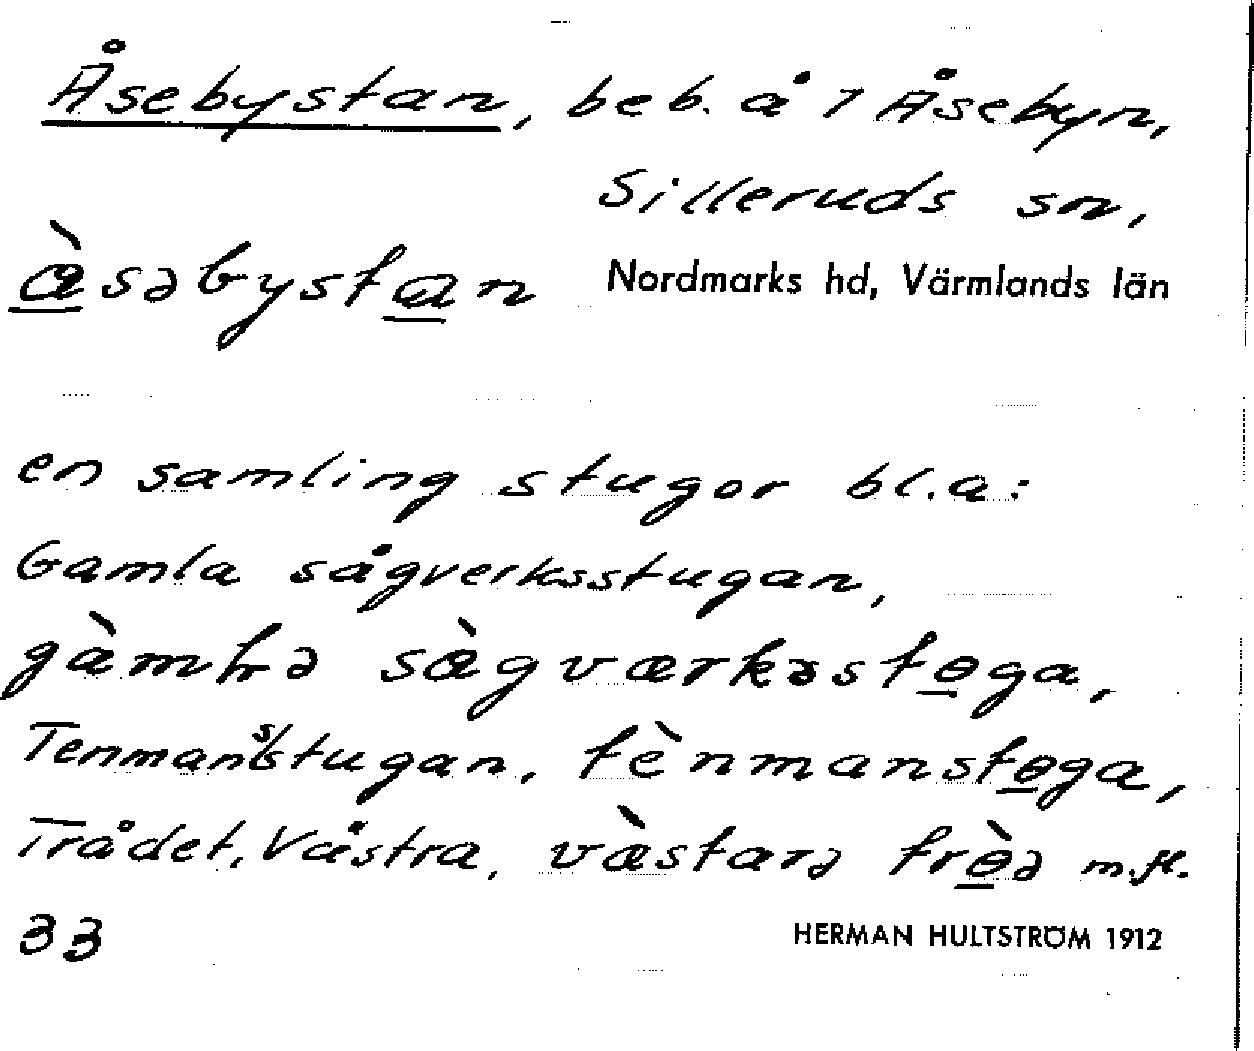 Åsebystan, beb. å 7 Åsebyn,
Silleruds sn,
Nordmarks hd, Värmlands län
à̲səbysta̲n
en samling stugor bl.a:
Gamla sågverksstugan,
gàmɫə sæ̀gværkəstɵ̲ga,
Tenmansstugan, tènmanstɵ̲ga,
Trådet, Västra, væ̀starə trɵ̲̀ə m.fl.
33
HERMAN HULTSTRÖM 1912